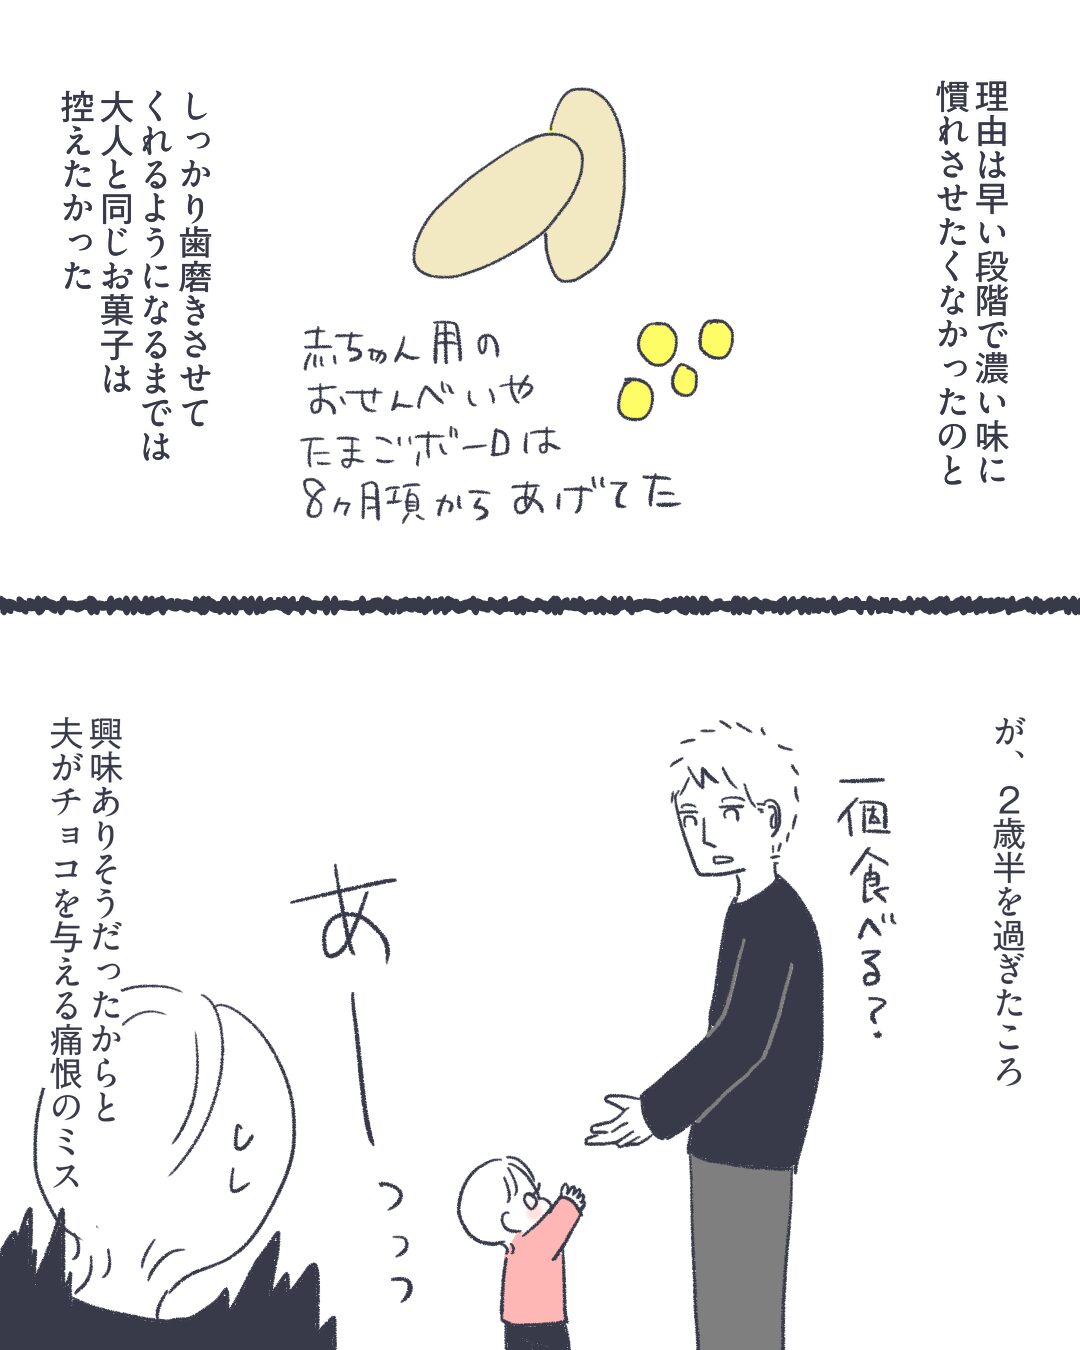 理由は早い段階で濃い味に
慣れさせたくなかったのと
赤ちゃん用の
おせんべいや
たまごボーロは
8ヶ月頃からあげてた
しっかり歯磨きさせて
くれるようになるまでは
大人と同じお菓子は
控えたかった
が、２歳半を過ぎたころ
一個食べる？
あーっっっ
興味ありそうだったからと
夫がチョコを与える痛恨のミス